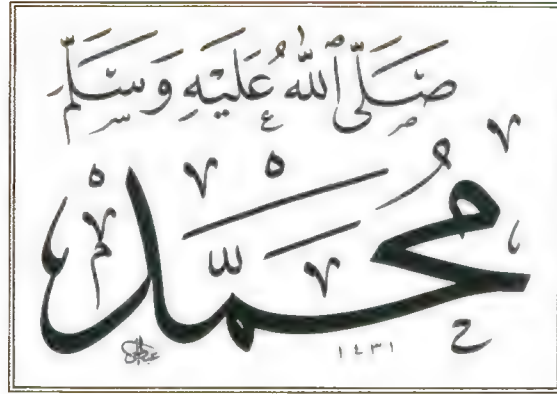 صَلَّى ٱللّٰه عَلَيْهِ وَسَلَّمَ
مُحَمَّد
١٤٣١